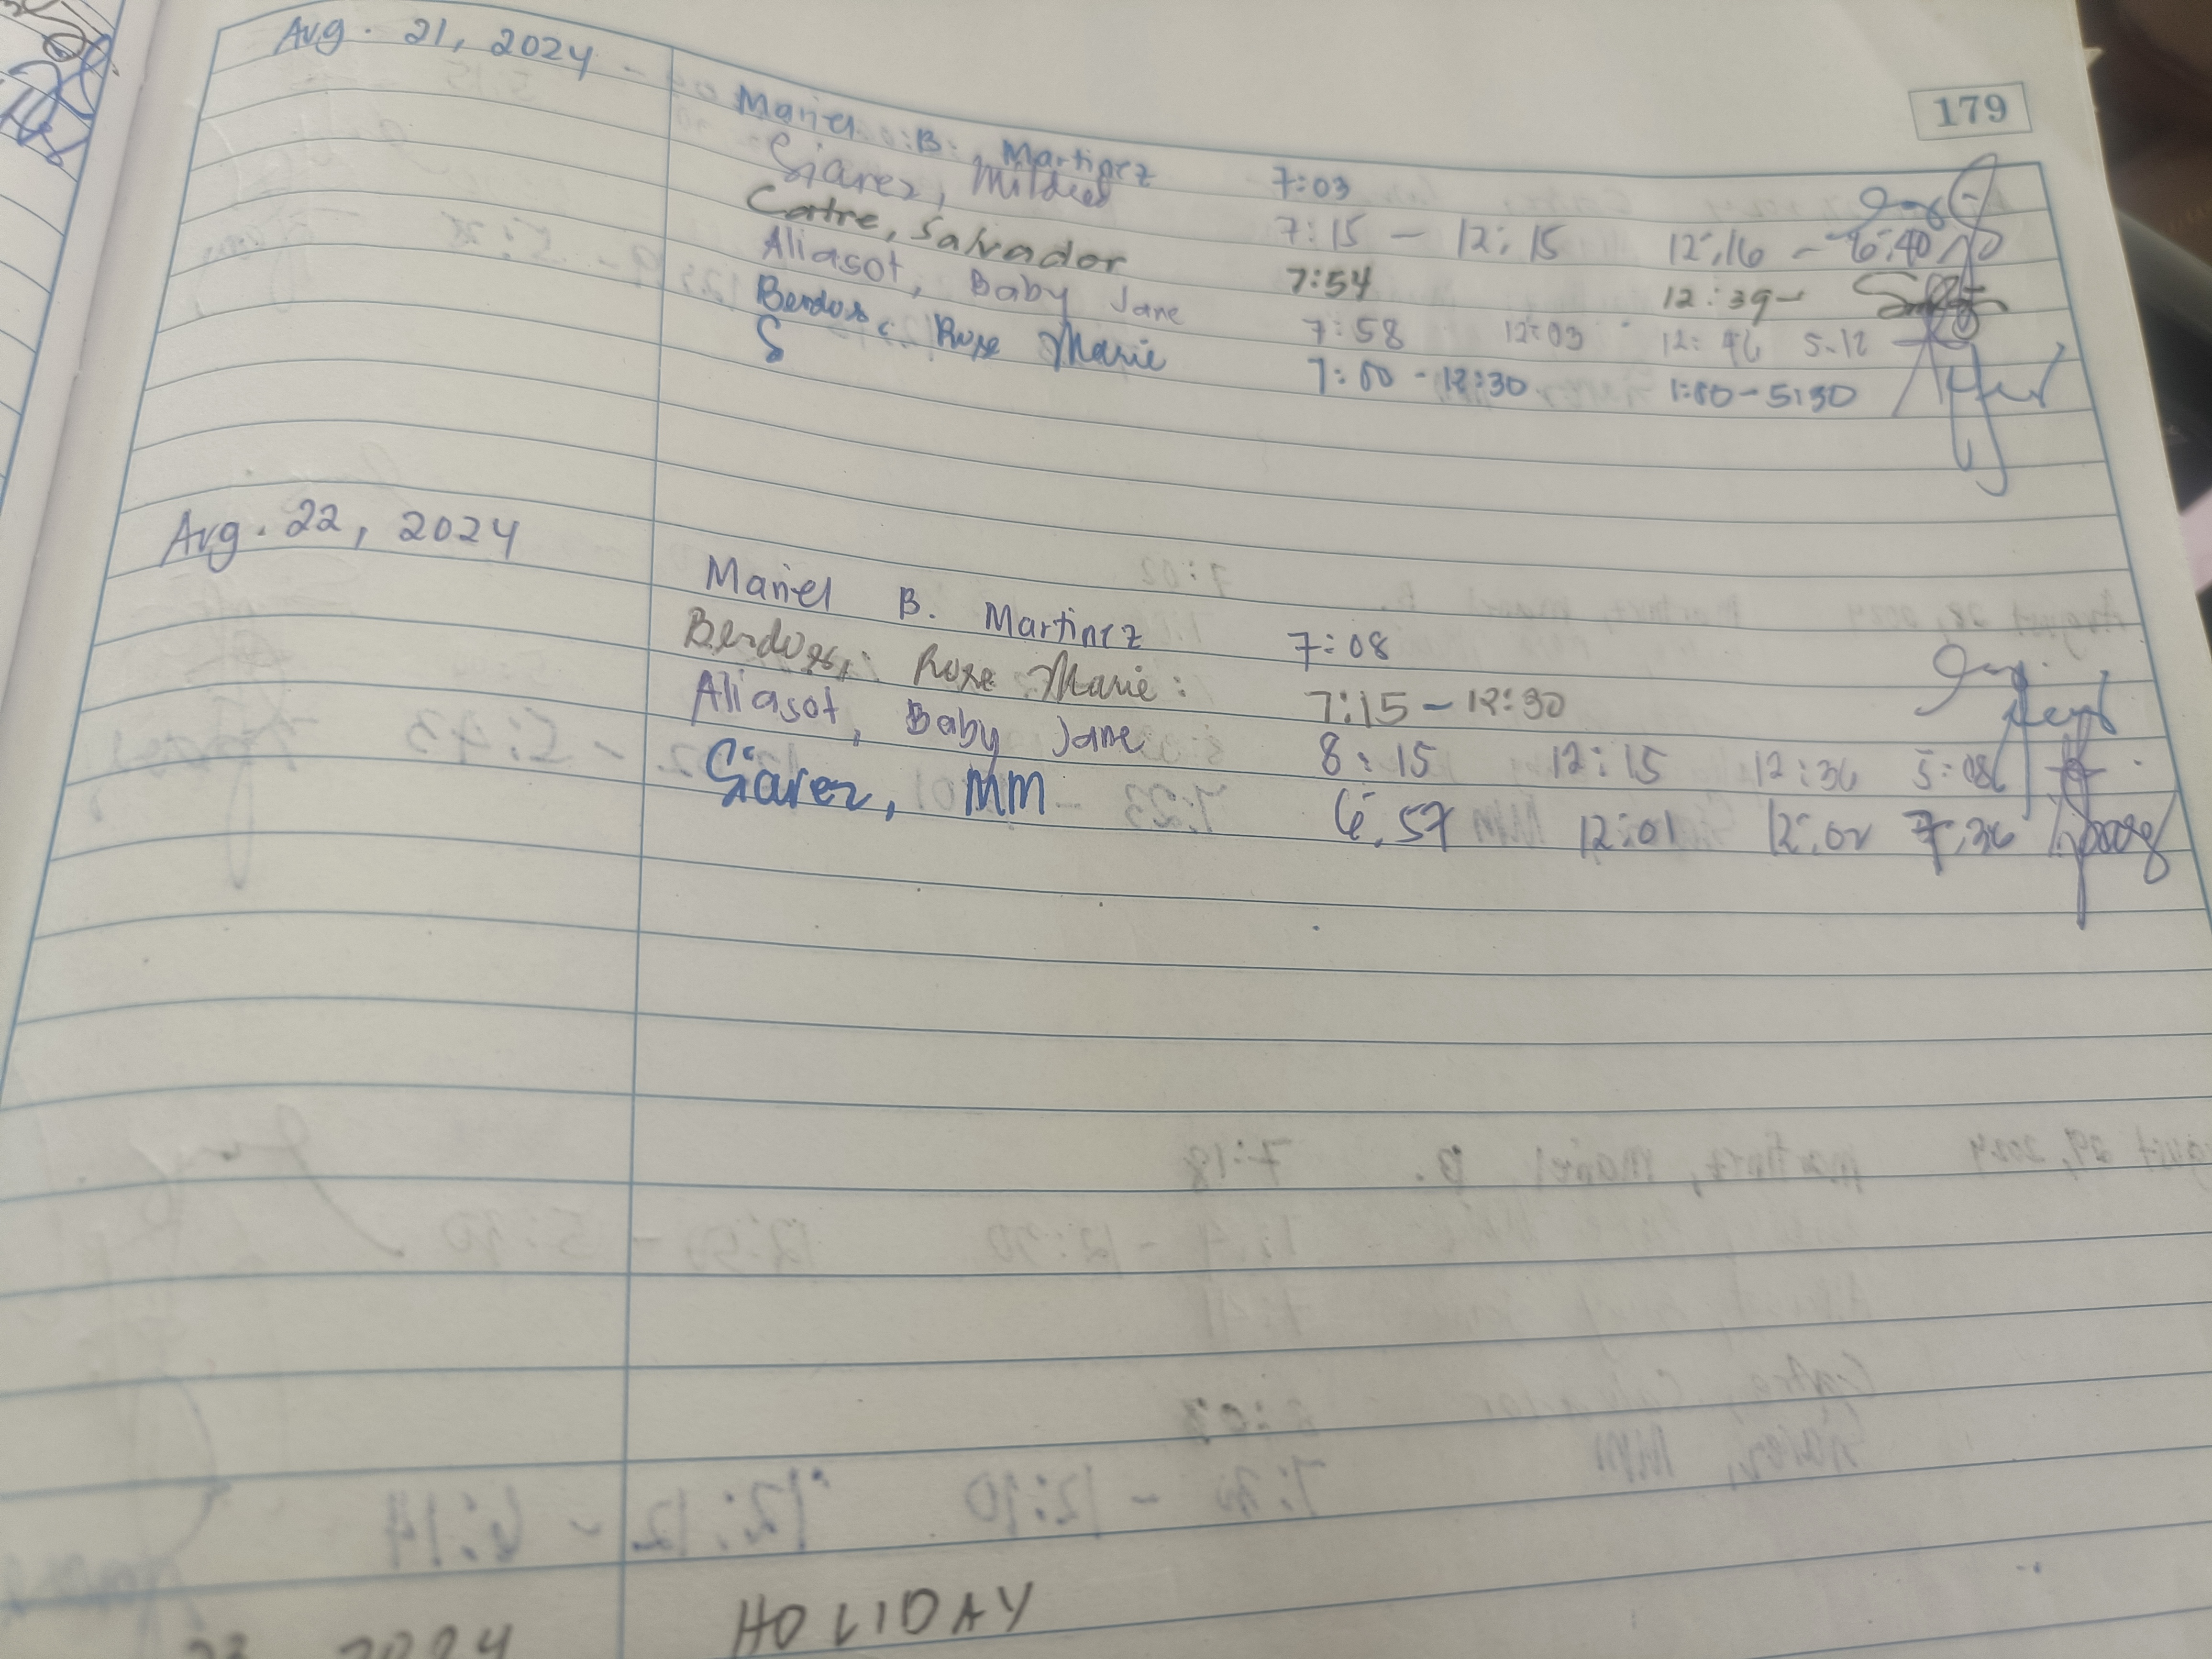 179
Aug. 21, 2024 -
Mariel B. Martinez 7:03
Siarez, Mildred 7:15 - 12:15 12:16 - 6:40
Catre, Salvador 7:54 12:39-
Aliasot, Baby Jane 7:58 12:03 12:46 5:12
Rose Marie 7:00 - 12:30 1:00 - 5:30
S
Aug. 22, 2024
Mariel B. Martinez 7:08
Rose Marie: 7:15 - 12:30
Aliasot, Baby Jane 8:15 12:15 12:36 5:08
Siarez, MM 6:57 12:01 12:02 7:36
2024 HOLIDAY